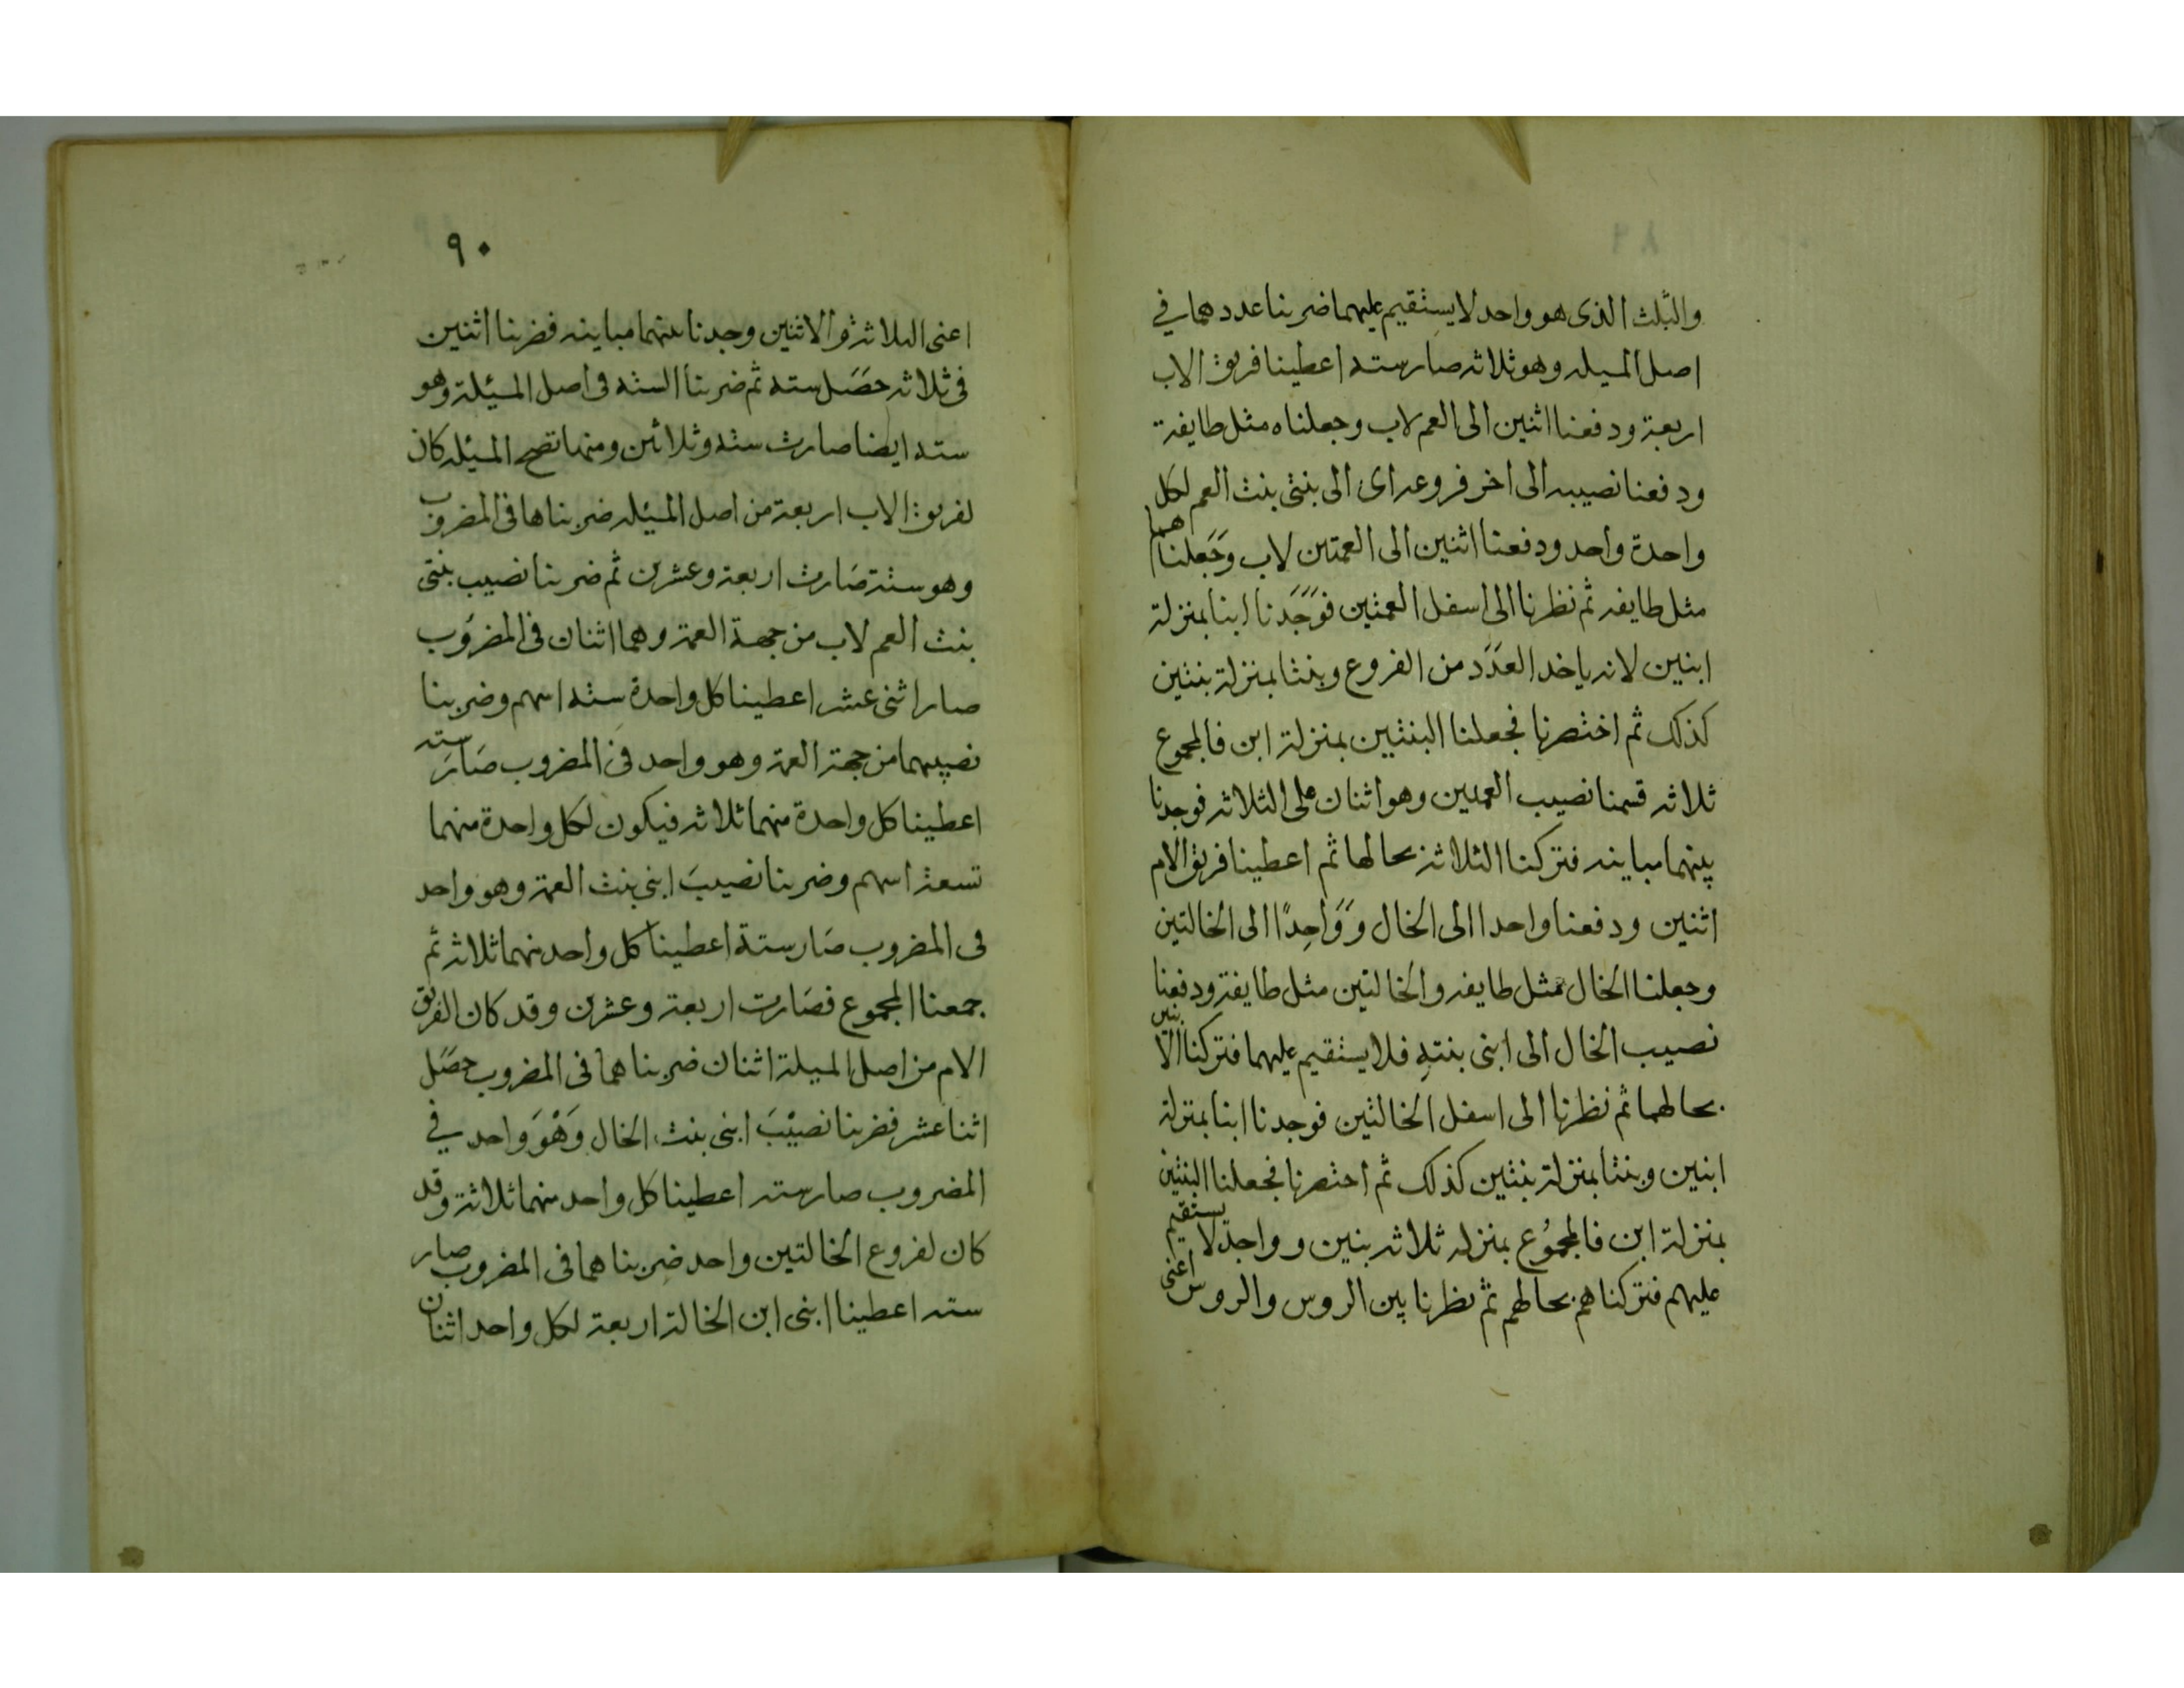 والثلث الذى هو واحد لا يستقيم عليهما ضربنا عددهما في
اصل المسيله وهو ثلاثه صار سته اعطينا فريق الاب
اربعة ودفعنا اثنين الى العم لاب وجعلناه مثل طايفة
ودفعنا نصيبه الى اخر فروعه اى الى بنتى بنت العم لكل
واحدة واحد ودفعنا اثنين الى العمتين لاب وجَعلناهما
مثل طايفه ثم نظرنا الى اسفل العمتين فوَجَدنا ابنا بمنزلة
ابنين لانه ياخد العدَد من الفروع وبنتا بمنزلة بنتين
كذلك ثم اختصرنا فجعلنا البنتين بمنزلة ابن فالمجموع
ثلاثه قسمنا نصيب العمتين وهو اثنان على الثلاثه فوجدنا
بينهما مباينه فتركنا الثلاثة بحالها ثم اعطينا فريق الام
اثنين ودفعنا واحدا الى الخال وَوَاحِدًا الى الخالتين
وجعلنا الخال مثل طايفه والخالتين مثل طايفة ودفعنا
نصيب الخال الى ابنى بنتهِ فلا يستقيم عليهما فتركنا الاثنين
بحالهما ثم نظرنا الى اسفل الخالتين فوجدنا ابنا بمنزلة
ابنين وبنتا بمنزلة بنتين كذلك ثم اختصرنا فجعلنا البنتين
بمنزلة ابن فالمجمُوع بمنزله ثلاثه بنين وواحد لا يستقيم
عليهم فتركناهم بحالهم ثم نظرنا بين الروس والروس اعنى
٩٠
اعنى الثلاثة والاثنين وجدنا بينهما مباينه فضربنا اثنين
فى ثلاثه حصَل سته ثم ضربنا الستة فى اصل المسيئلة وهو
سته ايضا صارت ستة وثلاثين ومنها تصح المسيئله كان
لفريق الاب اربعة من اصل المسيئله ضربناها فى المضروب
وهو ستة صَارت اربعة وعشرين ثم ضربنا نصيب بنتى
بنت العم لاب من جهة العمة وهما اثنان فى المضروب
صار اثنى عشر اعطينا كل واحدة ستة اسهم وضربنا
نصيبهما من جهة العمة وهو واحد فى المضروب صَارَ سته
اعطينا كل واحدة منهما ثلاثه فيكون لكل واحدة منهما
تسعة اسهم وضربنا نصيبَ ابنى بنت العمة وهو واحد
فى المضروب صَار ستة اعطينا كل واحد منهما ثلاثه ثم
جمعنا المجموع فصَارت اربعة وعشرين وقد كان الفريق
الام من اصل المسيلة اثنان ضربناهما فى المضروب حصَل
اثنا عشر فضربنا نصيْبَ ابنى بنت الخال وَهْوَ واحد في
المضروب صار سته اعطينا كل واحد منهما ثلاثة وقد
كان لفروع الخالتين واحد ضربناهما فى المضروب صار
سته اعطينا ابنى ابن الخالة اربعة لكل واحد اثنان